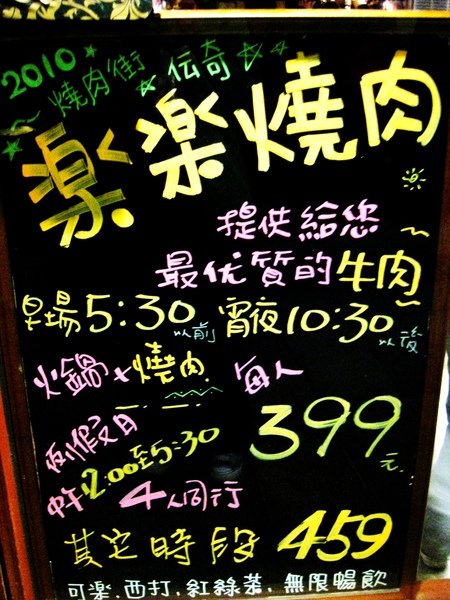 2010 燒肉街 伝奇
楽楽燒肉
提供給您
最优質的牛肉
早場5:30以前 宵夜10:30以後
火鍋×燒肉 每人
399元
例假日
中午12:00至5:30
4人同行
其它時段 459
可楽.西打.紅綠茶.無限暢飲